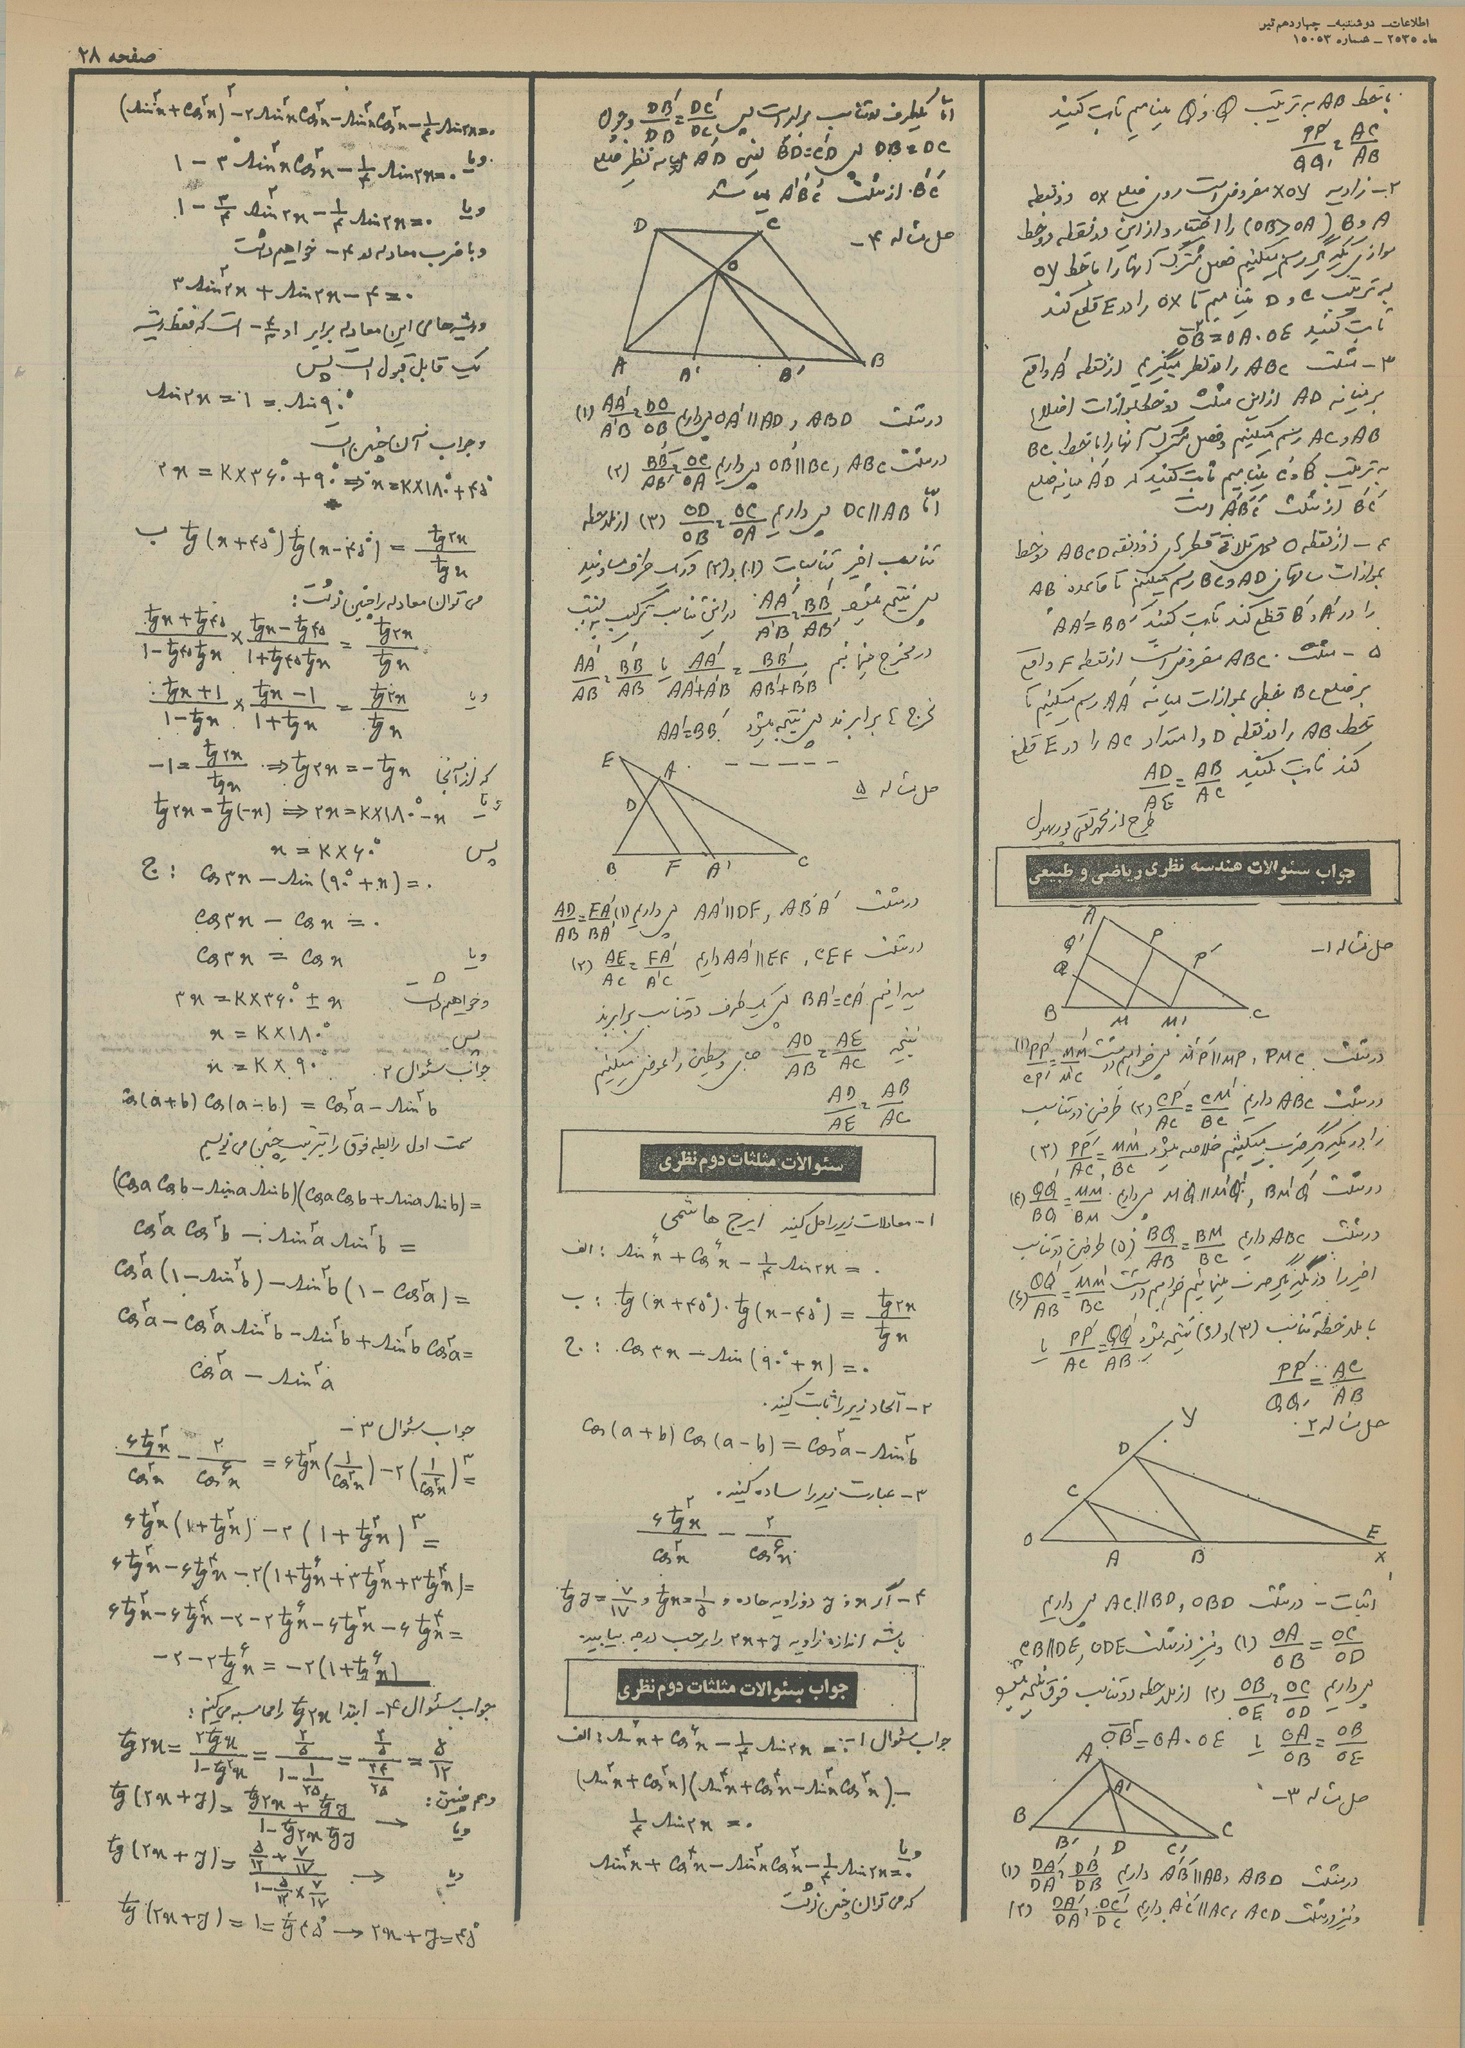 اطلاعات ـ دوشنبه ـ چهاردهم تیر
ماه ۲۵۳۵ ـ شماره ۱۵۰۵۳
صفحه ۲۸
با خط AD به ترتیب Q و Q′ مینامیم ثابت کنید
PP′/QQ′ = AC/AB
۲ـ زاویه XOY مفروض است روی ضلع OX دو نقطه
A و B (OB>OA) را اختیار و از این دو نقطه دو خط
موازی یکدیگر رسم میکنیم فصل مشترک آنها را با خط OY
به ترتیب C و D مینامیم تا OX را در E قطع کند
ثابت کنید OB² = OA.OE
۳ـ مثلث ABC را در نظر میگیریم از نقطه A′ واقع
بر میانه AD از این مثلث دو خط بموازات اضلاع
AB و AC رسم میکنیم و فصل مشترک آنها را با خط BC
به ترتیب B′ و C′ مینامیم ثابت کنید که A′D میانه ضلع
B′C′ از مثلث A′B′C′ است
۴ـ از نقطه O محل تلاقی قطرهای ذوذنقه ABCD دو خط
بموازات ساقهای AD و BC رسم میکنیم تا قاعده AB
را در A′ و B′ قطع کند ثابت کنید AA′ = BB′
۵ـ مثلث ABC مفروض است از نقطه F واقع
بر ضلع BC خطی بموازات میانه AA′ رسم میکنیم تا
خط AB را در نقطه D و امتداد AC را در E قطع
کند ثابت کنید AD/AE = AB/AC
طرح از محمدتقی پوربهلول
جواب سئوالات هندسه نظری ریاضی و طبیعی
حل مثاله ۱ـ
A
Q′ P
Q P′
B M M′ C
در مثلث PMC ، M′P′ ∥ MP پس خواهیم داشت PP′/CP′ = MM′/M′C (۱)
در مثلث ABC داریم CP′/AC = CM′/BC (۲) طرفین دو تناسب
را در یکدیگر ضرب میکنیم خلاصه میشود PP′/AC = MM′/BC (۳)
در مثلث BM′Q′ ، MQ ∥ M′Q′ پس داریم QQ′/BQ = MM′/BM (۴)
در مثلث ABC داریم BQ/AB = BM/BC (۵) طرفین دو تناسب
اخیر را در یکدیگر ضرب مینمائیم خواهیم داشت QQ′/AB = MM′/BC (۶)
با ملاحظه تناسب (۳) و (۶) نتیجه میشود PP′/AC = QQ′/AB یا
PP′/QQ′ = AC/AB
حل مثاله ۲
O A B E X
C D Y
اثبات ـ در مثلث OBD ، AC∥BD پس داریم
OA/OB = OC/OD (۱) و نیز در مثلث ODE ، CB∥DE
پس داریم OB/OE = OC/OD (۲) از ملاحظه دو تناسب فوق نتیجه میشود
OA/OB = OB/OE یا OB² = OA.OE
حل مثاله ۳ـ
A A′
B B′ D C′ C
در مثلث ABD ، A′B′∥AB داریم DA′/DA = DB′/DB (۱)
و نیز در مثلث ACD ، A′C′∥AC داریم DA′/DA = DC′/DC (۲)
اما یکطرف دو تناسب برابر است پس DB′/DB = DC′/DC و چون
DB = DC پس B′D = C′D یعنی A′D میانه نظیر ضلع
B′C′ از مثلث A′B′C′ میباشد
حل مثاله ۴ـ
D C
O
A A′ B′ B
در مثلث ABD و OA′∥AD پس داریم AA′/A′B = DO/OB (۱)
در مثلث ABC ، OB′∥BC پس داریم BB′/AB′ = OC/OA (۲)
اما DC∥AB پس داریم OD/OB = OC/OA (۳) از ملاحظه
تناسب اخیر تناسبات (۱) و (۲) در یک طرف مساویند
پس نتیجه میشود AA′/A′B = BB′/AB′ در این تناسب ترکیب نسبت
در مخرج مینمائیم AA′/AA′+A′B = BB′/AB′+B′B یا AA′/AB = BB′/AB
مخرج ها برابرند پس نتیجه میشود AA′=BB′
حل مثاله ۵
E A
D
B F A′ C
در مثلث ABA′ ، AA′∥DF پس داریم AD/AB = FA′/BA′ (۱)
در مثلث CEF ، AA′∥EF داریم AE/AC = FA′/A′C (۲)
میدانیم BA′=CA′ پس یک طرف دو تناسب برابرند
نتیجه AD/AB = AE/AC جای وسطین را عوض میکنیم
AD/AE = AB/AC
سئوالات مثلثات دوم نظری
۱ـ معادلات زیر را حل کنید ایرج هاشمی
الف : sin⁶x + cos⁶x − ¼ sin۲x = ۰
ب : tg(x+۴۵°).tg(x−۴۵°) = tg۲x/tgx
ج : cos۳x − sin(۹۰°+x) = ۰
۲ـ اتحاد زیر را ثابت کنید.
cos(a+b) cos(a−b) = cos²a − sin²b
۳ـ عبارت زیر را ساده کنید.
۶tg²x/cos²x − ۲/cos⁶x
۴ـ اگر x و y دو زاویه حاده و tgx=۱/۵ و tgy = ۷/۱۷
باشد اندازه زاویه ۲x+y را بر حسب درجه بیابید.
جواب سئوالات مثلثات دوم نظری
جواب سئوال ۱ـ الف : sin⁶x + cos⁶x − ¼ sin۲x = ۰
(sin²x+cos²x)(sin⁴x+cos⁴x−sin²xcos²x) −
¼ sin۲x = ۰
ویا
sin⁴x + cos⁴x − sin²xcos²x − ¼ sin۲x=۰
که می توان چنین نوشت
(sin²x+cos²x)² − ۲sin²xcos²x − sin²xcos²x − ¼ sin۲x=۰
ویا ۱ − ۳sin²xcos²x − ¼ sin۲x=۰
ویا ۱ − ¾ sin²۲x − ¼ sin۲x=۰
و با ضرب معادله در ۴− خواهیم داشت
۳sin²۲x + sin۲x − ۴ = ۰
و ریشه های این معادله برابر ۱ و ۴/۳− است که فقط ریشه
یک قابل قبول است پس
sin۲x = ۱ = sin۹۰°
و جواب آن چنین است
۲x = K×۳۶۰° + ۹۰° ⇒ x = K×۱۸۰° + ۴۵°
ب tg(x+۴۵°)tg(x−۴۵°) = tg۲x/tgx
می توان معادله را چنین نوشت :
tgx+tg۴۵/۱−tg۴۵tgx × tgx−tg۴۵/۱+tg۴۵tgx = tg۲x/tgx
ویا tgx+۱/۱−tgx × tgx−۱/۱+tgx = tg۲x/tgx
که از آنجا −۱ = tg۲x/tgx ⇒ tg۲x = −tgx
ویا tg۲x = tg(−x) ⇒ ۲x = K×۱۸۰° − x
پس x = K×۶۰°
ج : cos۳x − sin(۹۰°+x) = ۰
cos۳x − cosx = ۰
ویا cos۳x = cosx
و خواهیم داشت ۳x = K×۳۶۰° ± x
پس x = K×۱۸۰°
x = K×۹۰°
جواب سئوال ۲
cos(a+b) cos(a−b) = cos²a − sin²b
سمت اول رابطه فوق را بترتیب چنین می نویسیم
(cosa cosb − sina sinb)(cosa cosb + sina sinb) =
cos²a cos²b − sin²a sin²b =
cos²a(۱−sin²b) − sin²b(۱−cos²a) =
cos²a − cos²a sin²b − sin²b + sin²b cos²a =
cos²a − sin²a
جواب سئوال ۳ـ
۶tg²x/cos²x − ۲/cos⁶x = ۶tg²x(۱/cos²x) − ۲(۱/cos²x)³ =
۶tg²x(۱+tg²x) − ۲(۱+tg²x)³ =
۶tg²x − ۶tg⁴x − ۲(۱+tg⁶x+۳tg²x+۳tg⁴x) =
۶tg²x − ۶tg⁴x − ۲ − ۲tg⁶x − ۶tg²x − ۶tg⁴x =
−۲ − ۲tg⁶x = −۲(۱+tg⁶x)
جواب سئوال ۴ـ ابتدا tg۲x را محاسبه می کنیم :
tg۲x = ۲tgx/۱−tg²x = (۲/۵)/(۱−۱/۲۵) = (۲/۵)/(۲۴/۲۵) = ۵/۱۲
و هم چنین : tg(۲x+y) = tg۲x + tgy/۱−tg۲x tgy →
ویا
tg(۲x+y) = (۵/۱۲ + ۷/۱۷)/(۱−۵/۱۲ × ۷/۱۷) →
ویا
tg(۲x+y) = ۱ = tg۴۵° → ۲x+y = ۴۵°